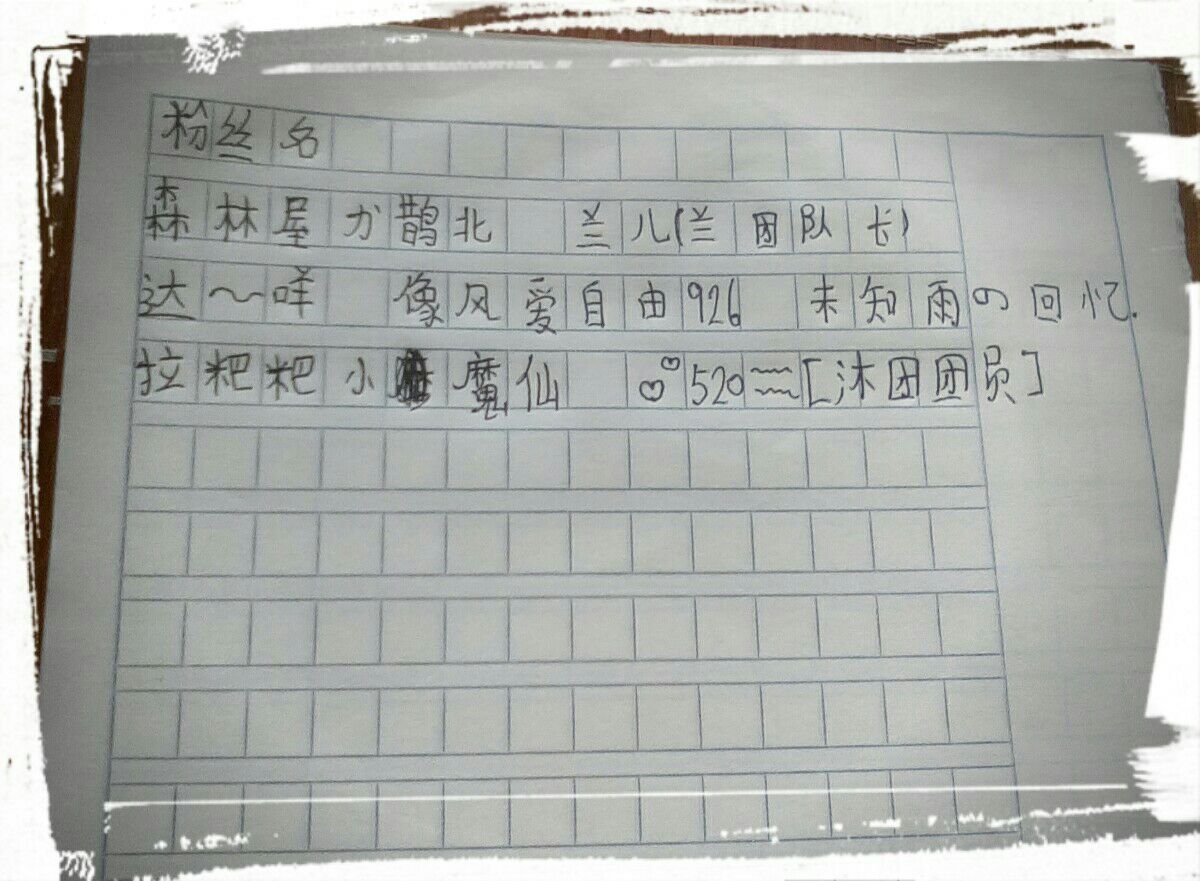 粉丝名
森林屋か鹊北 兰儿(兰团队长)
达～咩 像风爱自由926 未知雨の回忆.
拉粑粑小魔仙 ♡♡520~~[沐团团员]